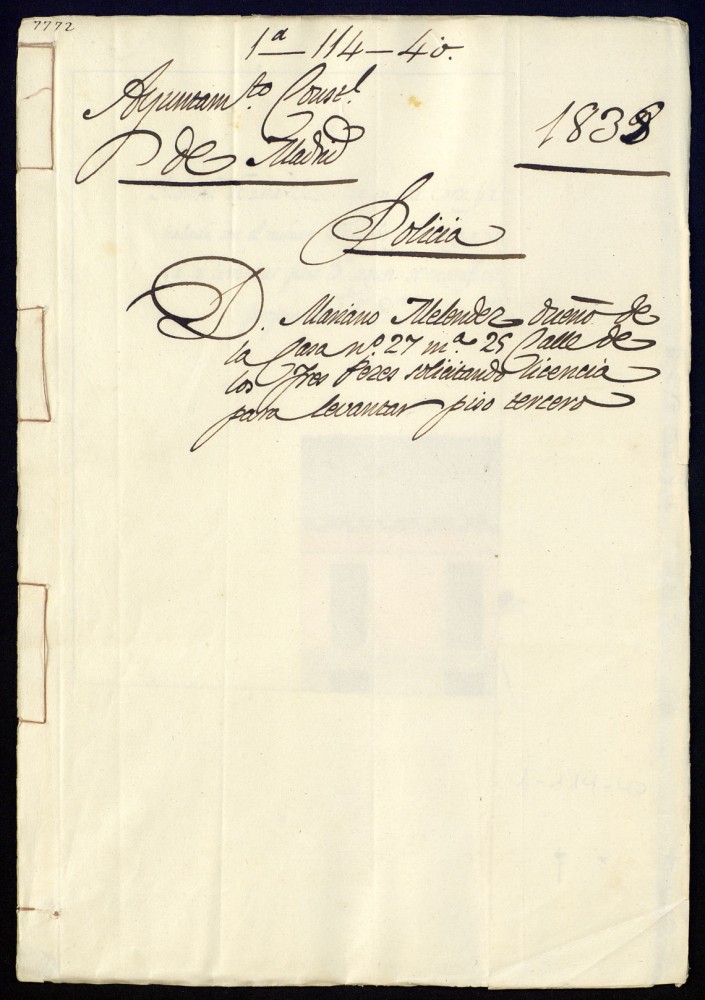 7772
1ª—114—40.
Ayuntamto. Constl.
de Madrid
1838
Policia
D. Mariano Melendez dueño de
la Casa nº 27 mª 25 Calle de
los Tres Pezes solicitando licencia
para levantar piso tercero